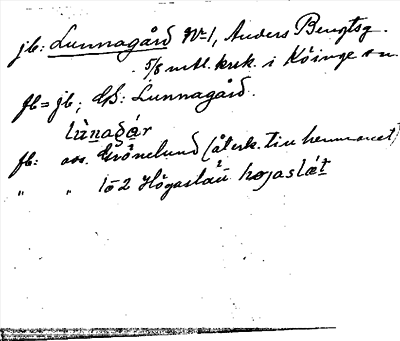 jb: Lunnagård No 1, Anders Bengtsg.
5/8 mtl. krsk. i Köinge sn.
fb = jb; GS: Lunnagård.
lùnagár
fb: avs. Grönelund (återk. till hemmanet)
" " 1 o 2 Högaslätt høgaslæt